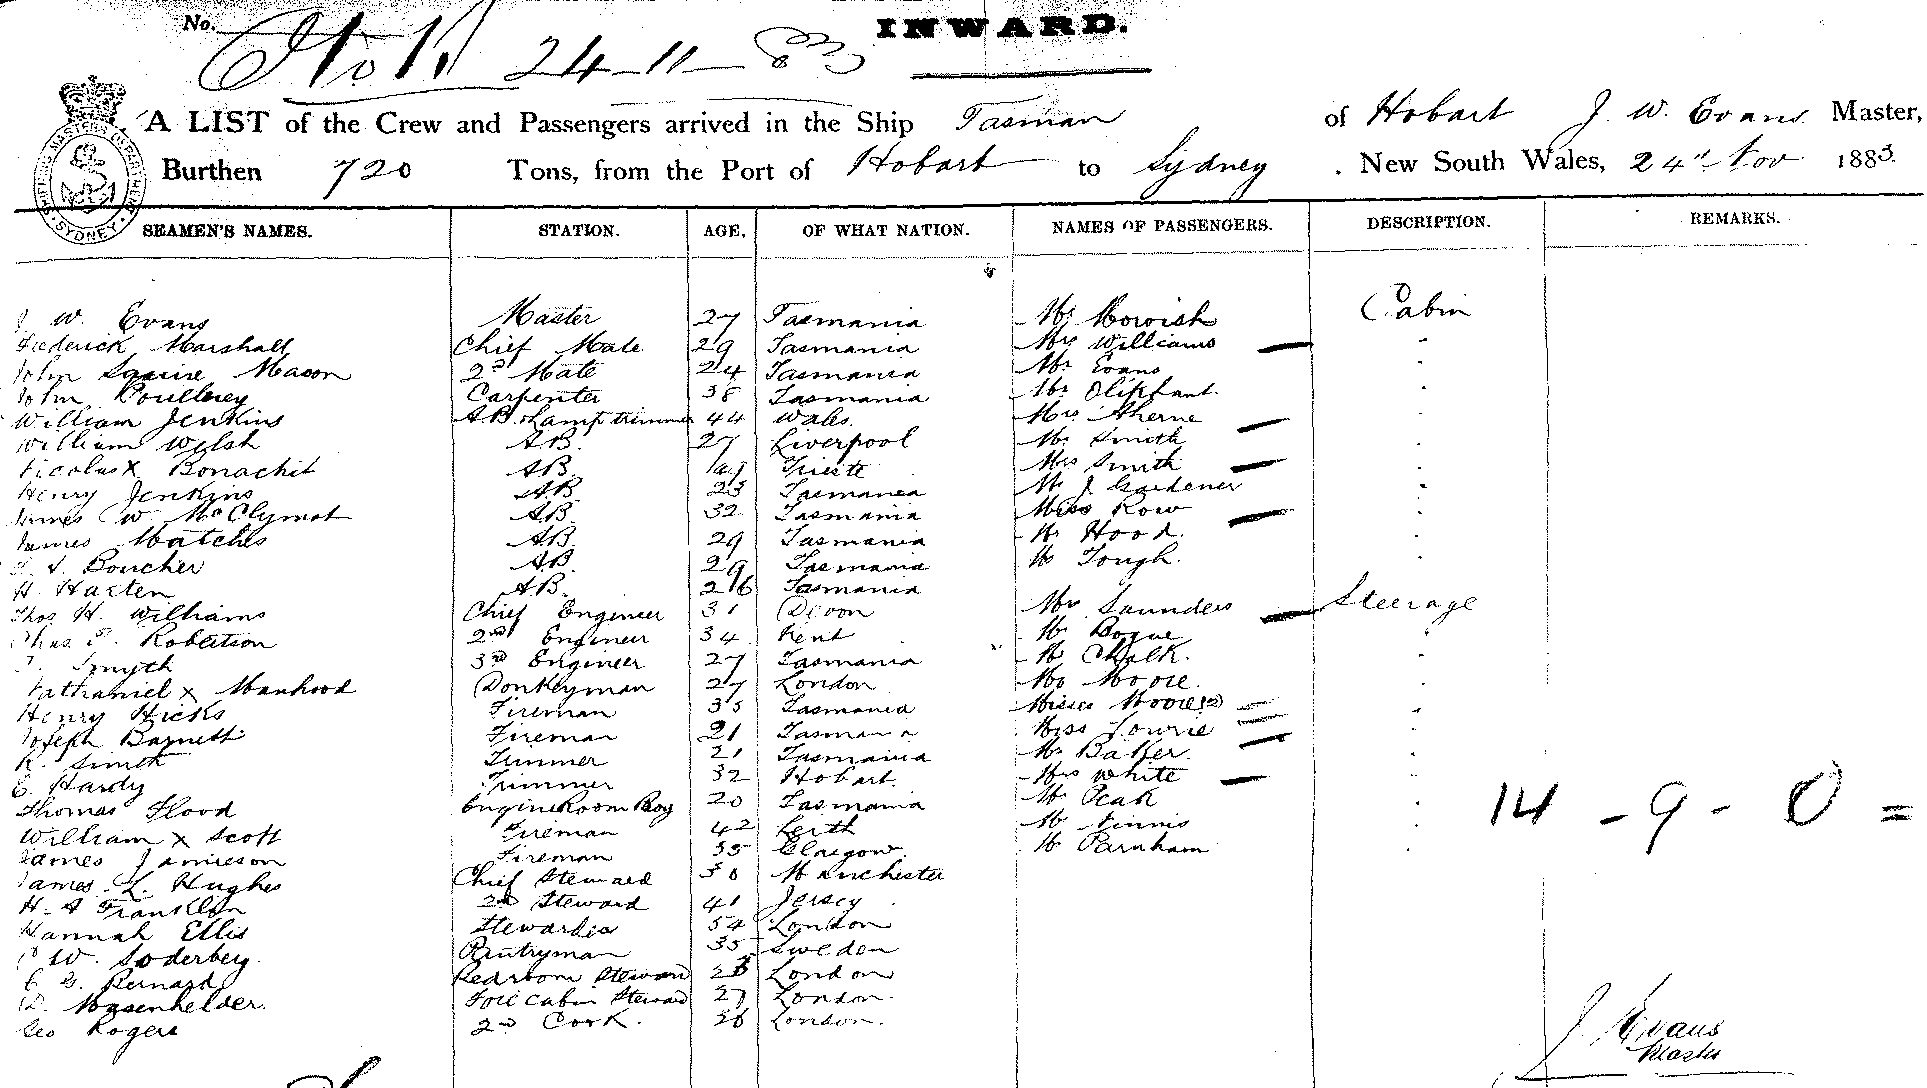 No.
INWARD.
24-11-83
A LIST of the Crew and Passengers arrived in the Ship Tasman of Hobart J. W. Evans Master,
Burthen 720 Tons, from the Port of Hobart to Sydney . New South Wales, 24th Nov 1883.
SYDNEY
SEAMEN'S NAMES. STATION. AGE. OF WHAT NATION. NAMES OF PASSENGERS. DESCRIPTION. REMARKS.
J. W. Evans Master 27 Tasmania Mr Cabin
Frederick Marshall Chief Mate 29 Tasmania Mrs Williams "
John Squire Mason 2nd Mate 24 Tasmania Mr Evans "
John Poulteney Carpenter 38 Tasmania Mr Oliphant "
William Jenkins A.B. & Lamp trimmer 44 Wales. Mrs Aherne "
William Welsh A.B. 27 Liverpool Mr Smith "
Nicolas X Bonachit A.B. Trieste Mrs Smith "
Henry Jenkins A.B. 23 Tasmania Mr J Gardener "
James W McClymot A.B. 32 Tasmania Miss Row "
James Matches A.B. 29 Tasmania Mr Hood. "
Boucher A.B. 29 Tasmania Mr Tough.
H. Harten A.B. 26 Tasmania
Thos H. Williams Chief Engineer 31 Devon Mrs Saunders Steerage
Chas Robertson 2nd Engineer 34 Kent Mr Bogue "
Smyth 3rd Engineer 27 Tasmania Mr Chalk. "
Nathaniel X Manhood Donkeyman 27 London Mr Moore. "
Henry Hicks Fireman 35 Tasmania Misses Moore (2) "
Joseph Barnett Fireman 21 Tasmania Miss Lowrie "
R. Smith Trimmer 21 Tasmania Mr Baker "
E. Hardy Trimmer 32 Hobart. Mrs White "
Thomas Flood Engine Room Boy 20 Tasmania Mr Peak " 14 - 9 - 0 =
William X Scott Fireman 42 Leith Mr Ninnis "
James Jamieson Fireman 35 Glasgow. Mr Parnham "
James L. Hughes Chief Steward 30 Manchester
H. A Franklin 2nd Steward 41 Jersey
Hannah Ellis Stewardess 54 London
W. Soderbey. Pantryman 35 Sweden
Bernard Bedroom Steward London
D. Masenhelder. Fore Cabin Steward 27 London.
Geo Rogers 2nd Cook. London.
J Evans
Master